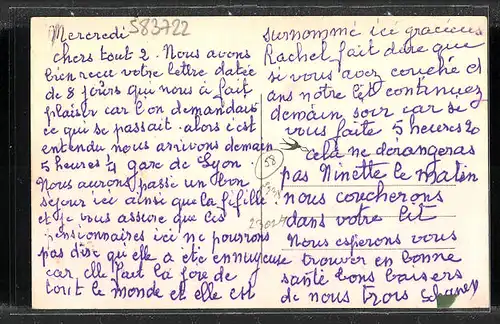 Mercredi 583722
chers tout 2. Nous avons
bien reçu votre lettre datée
de 8 jours qui nous a fait
plaisir car l'on demandais
ce qui se passait. alors c'est
entendu nous arrivons demain
5 heures ¼ gare de Lyon.
Nous aurons passé un bon
sejour ici ainsi que la fifille
et je vous assure que les
pensionnaires ici ne pourrons
pas dire qu'elle a été ennuyeuse
car elle fait la joie de
tout le monde et elle est
surnommé ici gracieuse
Rachel fait dire que
si vous avez couché et
dans notre lit continuez
demain soir car se
vous faite 5 heures 20
celà ne dérangeras
58
pas Ninette le matin
nous coucherons
dans votre lit
Nous espérons vous
trouver en bonne
santé bons baisers
de nous trois